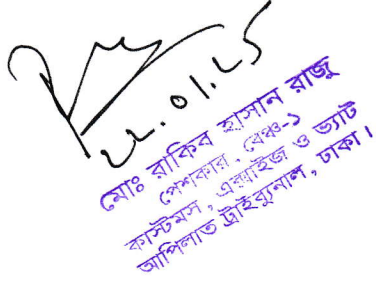 ২২.০১.২৫
মোঃ রাকিব হাসান রাজু
পেশকার, বেঞ্চ-১
কাস্টমস, এক্সাইজ ও ভ্যাট
আপিলাত ট্রাইব্যুনাল, ঢাকা।